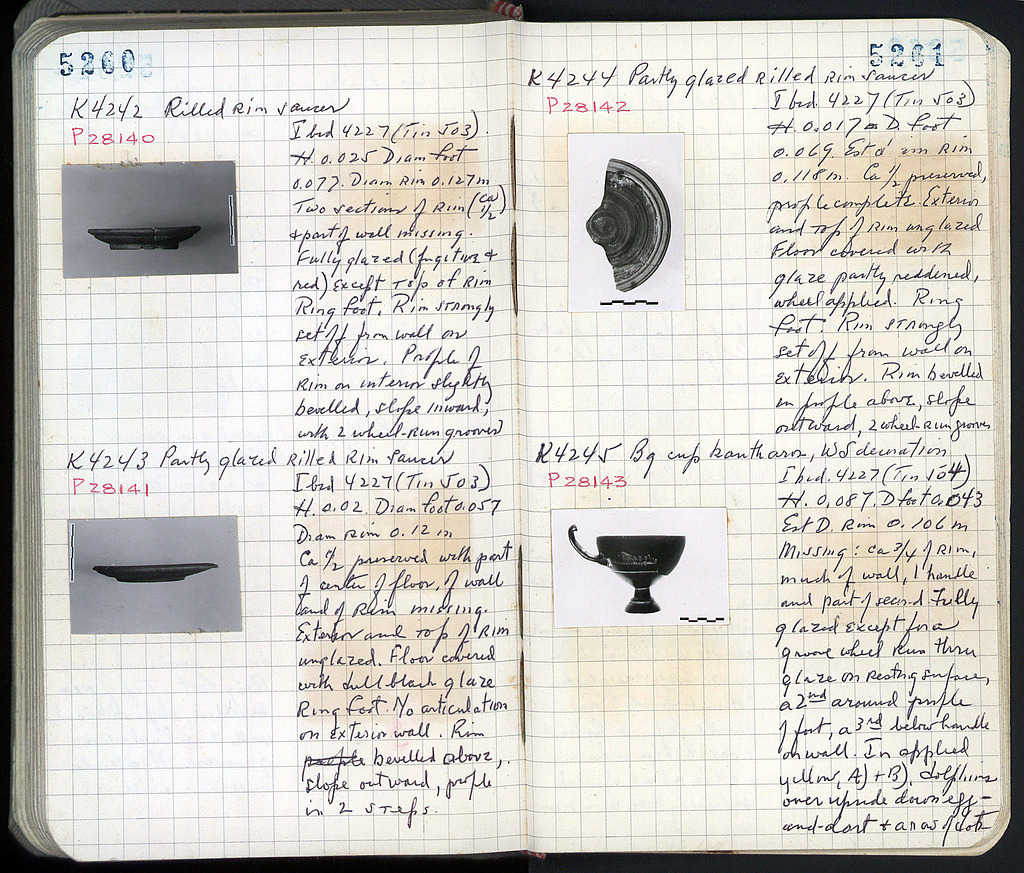 5260
K4242 Rilled Rim saucer
P28140
Ibid 4227 (Tin 503).
H. 0.025 Diam foot
0.077. Diam Rim 0.127m
Two sections of Rim (ca 1/2)
& part of wall missing.
Fully glazed (fugitive &
red) except top of Rim
Ring foot. Rim strongly
set off from wall on
exterior. Profile of
Rim on interior slightly
bevelled, slope inward,
with 2 wheel-run grooves
K4243 Partly glazed Rilled Rim saucer
P28141
Ibid 4227 (Tin 503)
H. 0.02. Diam foot 0.057
Diam rim 0.12 m
Ca 1/2 preserved with part
of center of floor, of wall
and of Rim missing.
Exterior and top of Rim
unglazed. Floor covered
with dull black glaze
Ring foot. No articulation
on exterior wall. Rim
profile bevelled above,
slope outward, profile
in 2 steps.
5261
K4244 Partly glazed Rilled Rim saucer
P28142
Ibid. 4227 (Tin 503)
H. 0.017 D. foot
0.069. Est d Rim
0.118m. Ca 1/2 preserved,
profile complete. Exterior
and top of Rim unglazed
Floor covered with
glaze partly reddened,
wheel applied. Ring
foot. Rim strongly
set off from wall on
exterior. Rim bevelled
in profile above, slope
outward, 2 wheel-run grooves
K4245 Bg cup kantharos, WS decoration
P28143
Ibid. 4227 (Tin 504)
H. 0.087. D foot 0.043
Est D. Rim 0.106 m
Missing: ca 3/4 of Rim,
much of wall, 1 handle
and part of second Fully
glazed except for a
groove wheel run thru
glaze on resting surface,
a 2nd around profile
of foot, a 3rd below handle
on wall. In applied
yellow, A) + B), dolphins
over upside down egg-
and-dart & a row of dots